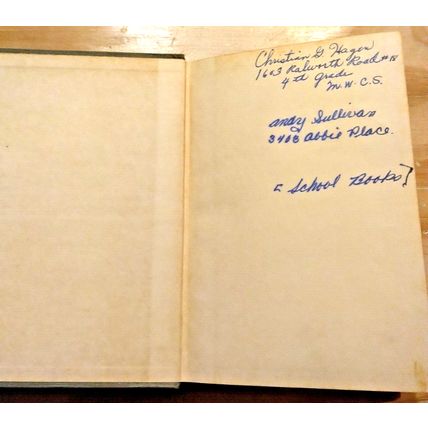 Christian G Hagen
1603 Ralworth Road #18
4th grade
M.W.C.S.
Andy Sullivan
3408 Abbie Place.
[School Books]